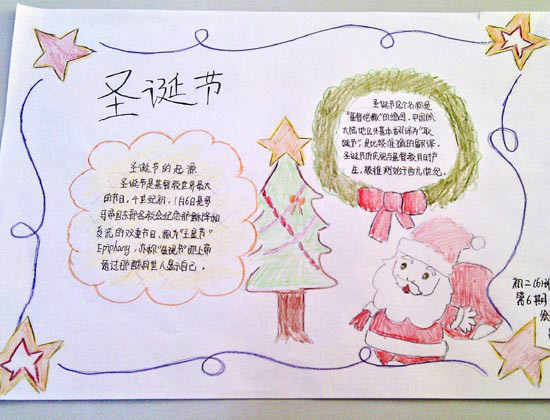 圣诞节
圣诞节的起源
圣诞节是基督教世界最大
的节日。4世纪初，1月6日是罗
马帝国东部各教会纪念耶稣降临和
受洗的双重节日，称为"主显节"
Epiphany，亦称"显现节"即上帝
通过耶稣向世人显示自己。
圣诞节这个名称是
"基督弥撒"的缩写，中国除
大陆地区外基本都译为"耶
诞节"，是比较准确的翻译。
初二(6)
第6期